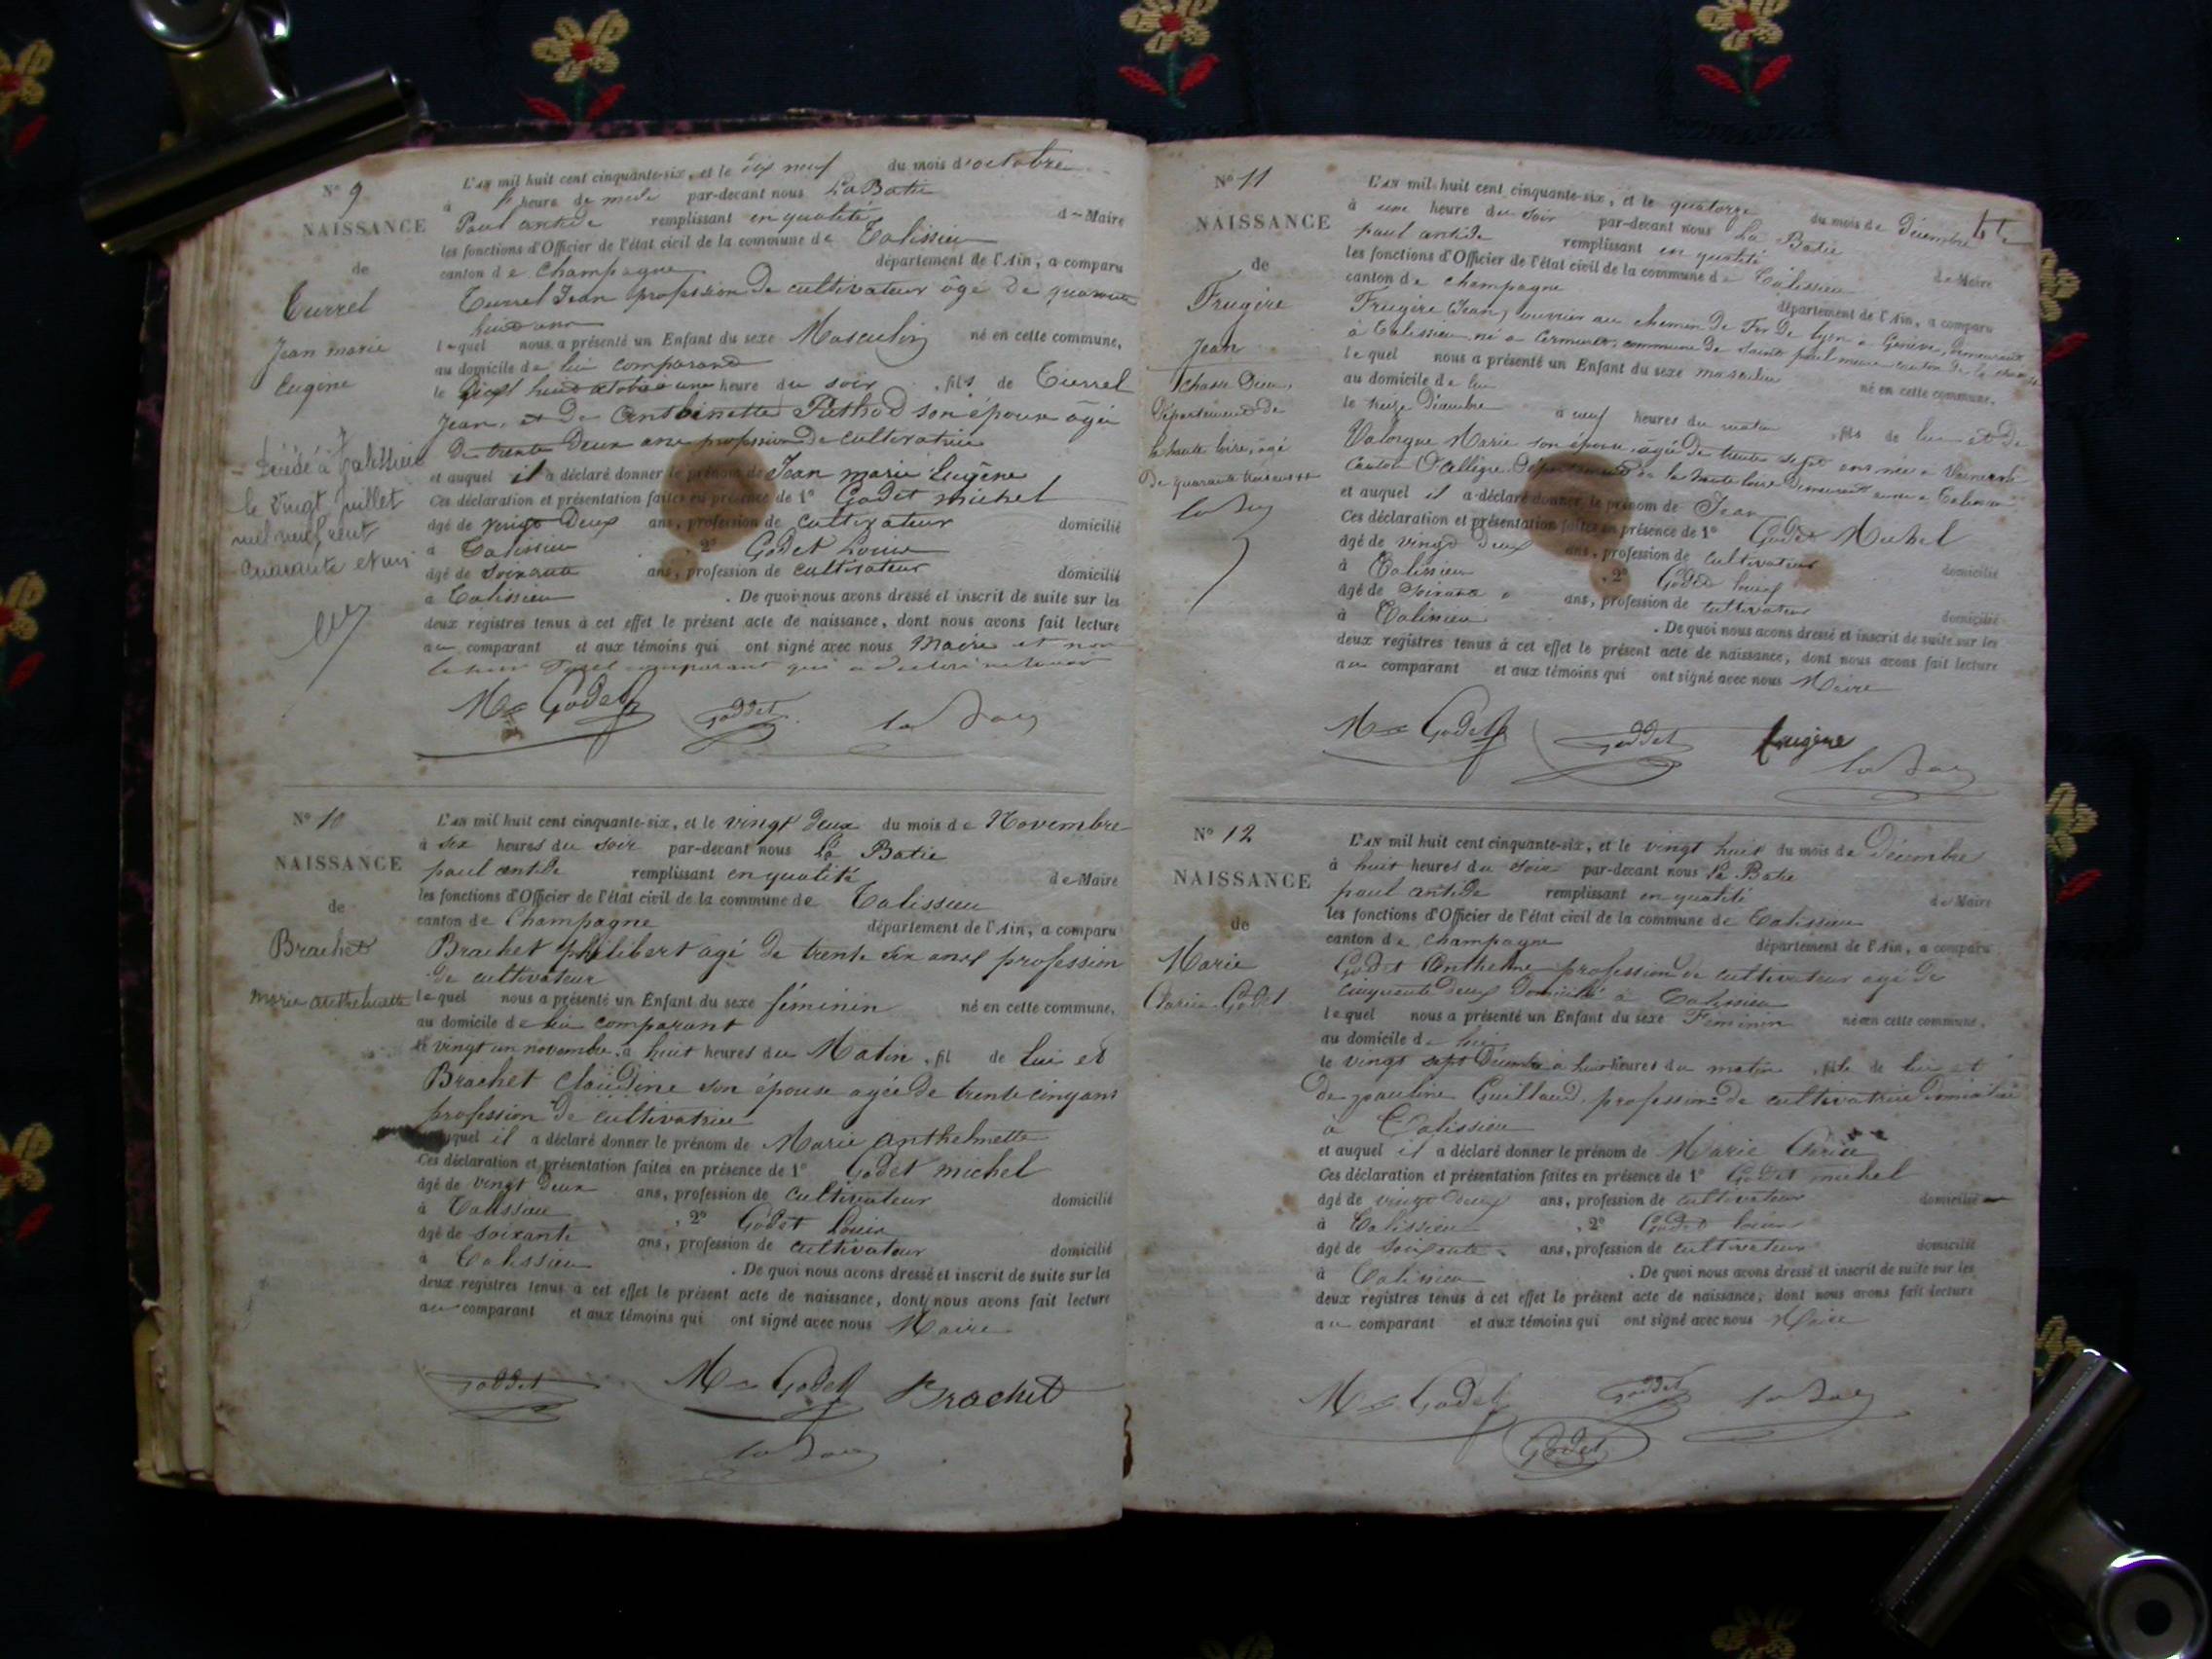 N° 9
NAISSANCE
de
Turrel
Jean marie
Eugène
décédé à Talissieu
le vingt juillet
mil neuf cent
quarante et un
L'AN mil huit cent cinquante-six, et le dix neuf du mois d'octobre
à heure de par-devant nous La Batie
Paul antide remplissant en qualité de Maire
les fonctions d'Officier de l'état civil de la commune de Talissieu
canton de Champagne département de l'Ain, a comparu
Turrel Jean profession de cultivateur âgé de quarante
huit ans
lequel nous a présenté un Enfant du sexe Masculin né en cette commune,
au domicile de lui comparand
le une heure du soir, fils de Turrel
Jean, et de Antoinette son épouse âgée
de trente deux ans profession de cultivatrice
et auquel il a déclaré donner le prénom de Jean marie Eugène
Ces déclaration et présentation faites en présence de 1° Godet michel
âgé de vingt deux ans, profession de cultivateur domicilié
à Talissieu , 2° Godet Louis
âgé de soixante ans, profession de cultivateur domicilié
à Talissieu . De quoi nous avons dressé et inscrit de suite sur les
deux registres tenus à cet effet le présent acte de naissance, dont nous avons fait lecture
au comparant et aux témoins qui ont signé avec nous Maire et non
comparant qui a déclaré ne savoir
M Godet Goddet
N° 10
NAISSANCE
de
Brachet
Marie anthelmette
L'AN mil huit cent cinquante-six, et le vingt deux du mois de Novembre
à six heures du soir par-devant nous La Batie
paul antide remplissant en qualité de Maire
les fonctions d'Officier de l'état civil de la commune de Talissieu
canton de Champagne département de l'Ain, a comparu
Brachet philibert âgé de trente six ans profession
de cultivateur
lequel nous a présenté un Enfant du sexe féminin né en cette commune,
au domicile de lui comparant
le vingt un novembre à huit heures du Matin, fil de Lui et
Brachet Claudine son épouse agée de trente cinq ans
profession de cultivatrice
et auquel il a déclaré donner le prénom de Marie anthelmette
Ces déclaration et présentation faites en présence de 1° Godet michel
âgé de vingt deux ans, profession de cultivateur domicilié
à Talissieu , 2° Godet Louis
âgé de soixante ans, profession de cultivateur domicilié
à Talissieu . De quoi nous avons dressé et inscrit de suite sur les
deux registres tenus à cet effet le présent acte de naissance, dont nous avons fait lecture
au comparant et aux témoins qui ont signé avec nous Maire
Goddet M Godet Brachet
N° 11
NAISSANCE
de
Frugère
Jean
chaise Dieu,
Département de
la haute loire, âgé
De quarante
L'AN mil huit cent cinquante-six, et le quatorze du mois de Décembre
à une heure du soir par-devant nous La Batie
paul antide remplissant en qualité de Maire
les fonctions d'Officier de l'état civil de la commune de Talissieu
canton de champagne département de l'Ain, a comparu
Frugère Jean, ouvrier au chemin De Fer De Lyon a Genève, demeurant
à Talissieu, né a commune De Saint paul canton De la chaise
lequel nous a présenté un Enfant du sexe masculin né en cette commune,
au domicile de lui
le treize Décembre à neuf heures du matin, fils de lui et de
Marie son épouse, agée de trente sept ans née a
Canton D'allègre Département de la haute loire Demeurant a Talissieu
et auquel il a déclaré donner le prénom de Jean
Ces déclaration et présentation faites en présence de 1° Godet Michel
âgé de vingt deux ans, profession de cultivateur domicilié
à Talissieu , 2° Godet louis
âgé de soixante ans, profession de cultivateur domicilié
à Talissieu . De quoi nous avons dressé et inscrit de suite sur les
deux registres tenus à cet effet le présent acte de naissance, dont nous avons fait lecture
au comparant et aux témoins qui ont signé avec nous Maire
M Godet Goddet frugère
N° 12
NAISSANCE
de
Marie
Godet
L'AN mil huit cent cinquante-six, et le vingt huit du mois de Décembre
à huit heures du soir par-devant nous La Batie
paul antide remplissant en qualité de Maire
les fonctions d'Officier de l'état civil de la commune de Talissieu
canton de champagne département de l'Ain, a comparu
Godet Anthelme profession de cultivateur agé de
cinquante deux Domicilié à Talissieu
lequel nous a présenté un Enfant du sexe Féminin né en cette commune,
au domicile de lui
le vingt sept Décembre à huit heures du matin, fille de lui et
de pauline Guillaud, profession de cultivatrice domiciliée
à Talissieu
et auquel il a déclaré donner le prénom de Marie
Ces déclaration et présentation faites en présence de 1° Godet michel
âgé de vingt deux ans, profession de cultivateur domicilié
à Talissieu , 2° Godet louis
âgé de soixante ans, profession de cultivateur domicilié
à Talissieu . De quoi nous avons dressé et inscrit de suite sur les
deux registres tenus à cet effet le présent acte de naissance, dont nous avons fait lecture
au comparant et aux témoins qui ont signé avec nous Maire
M Godet Goddet
Godet